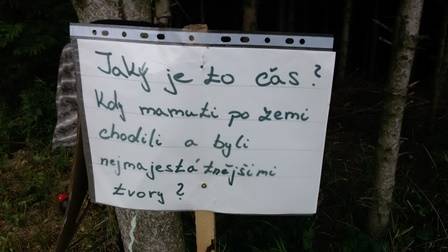 Jaký je to čás?
Kdy mamuti po zemi
chodili a byli
nejmajestátnějšimi
tvory?